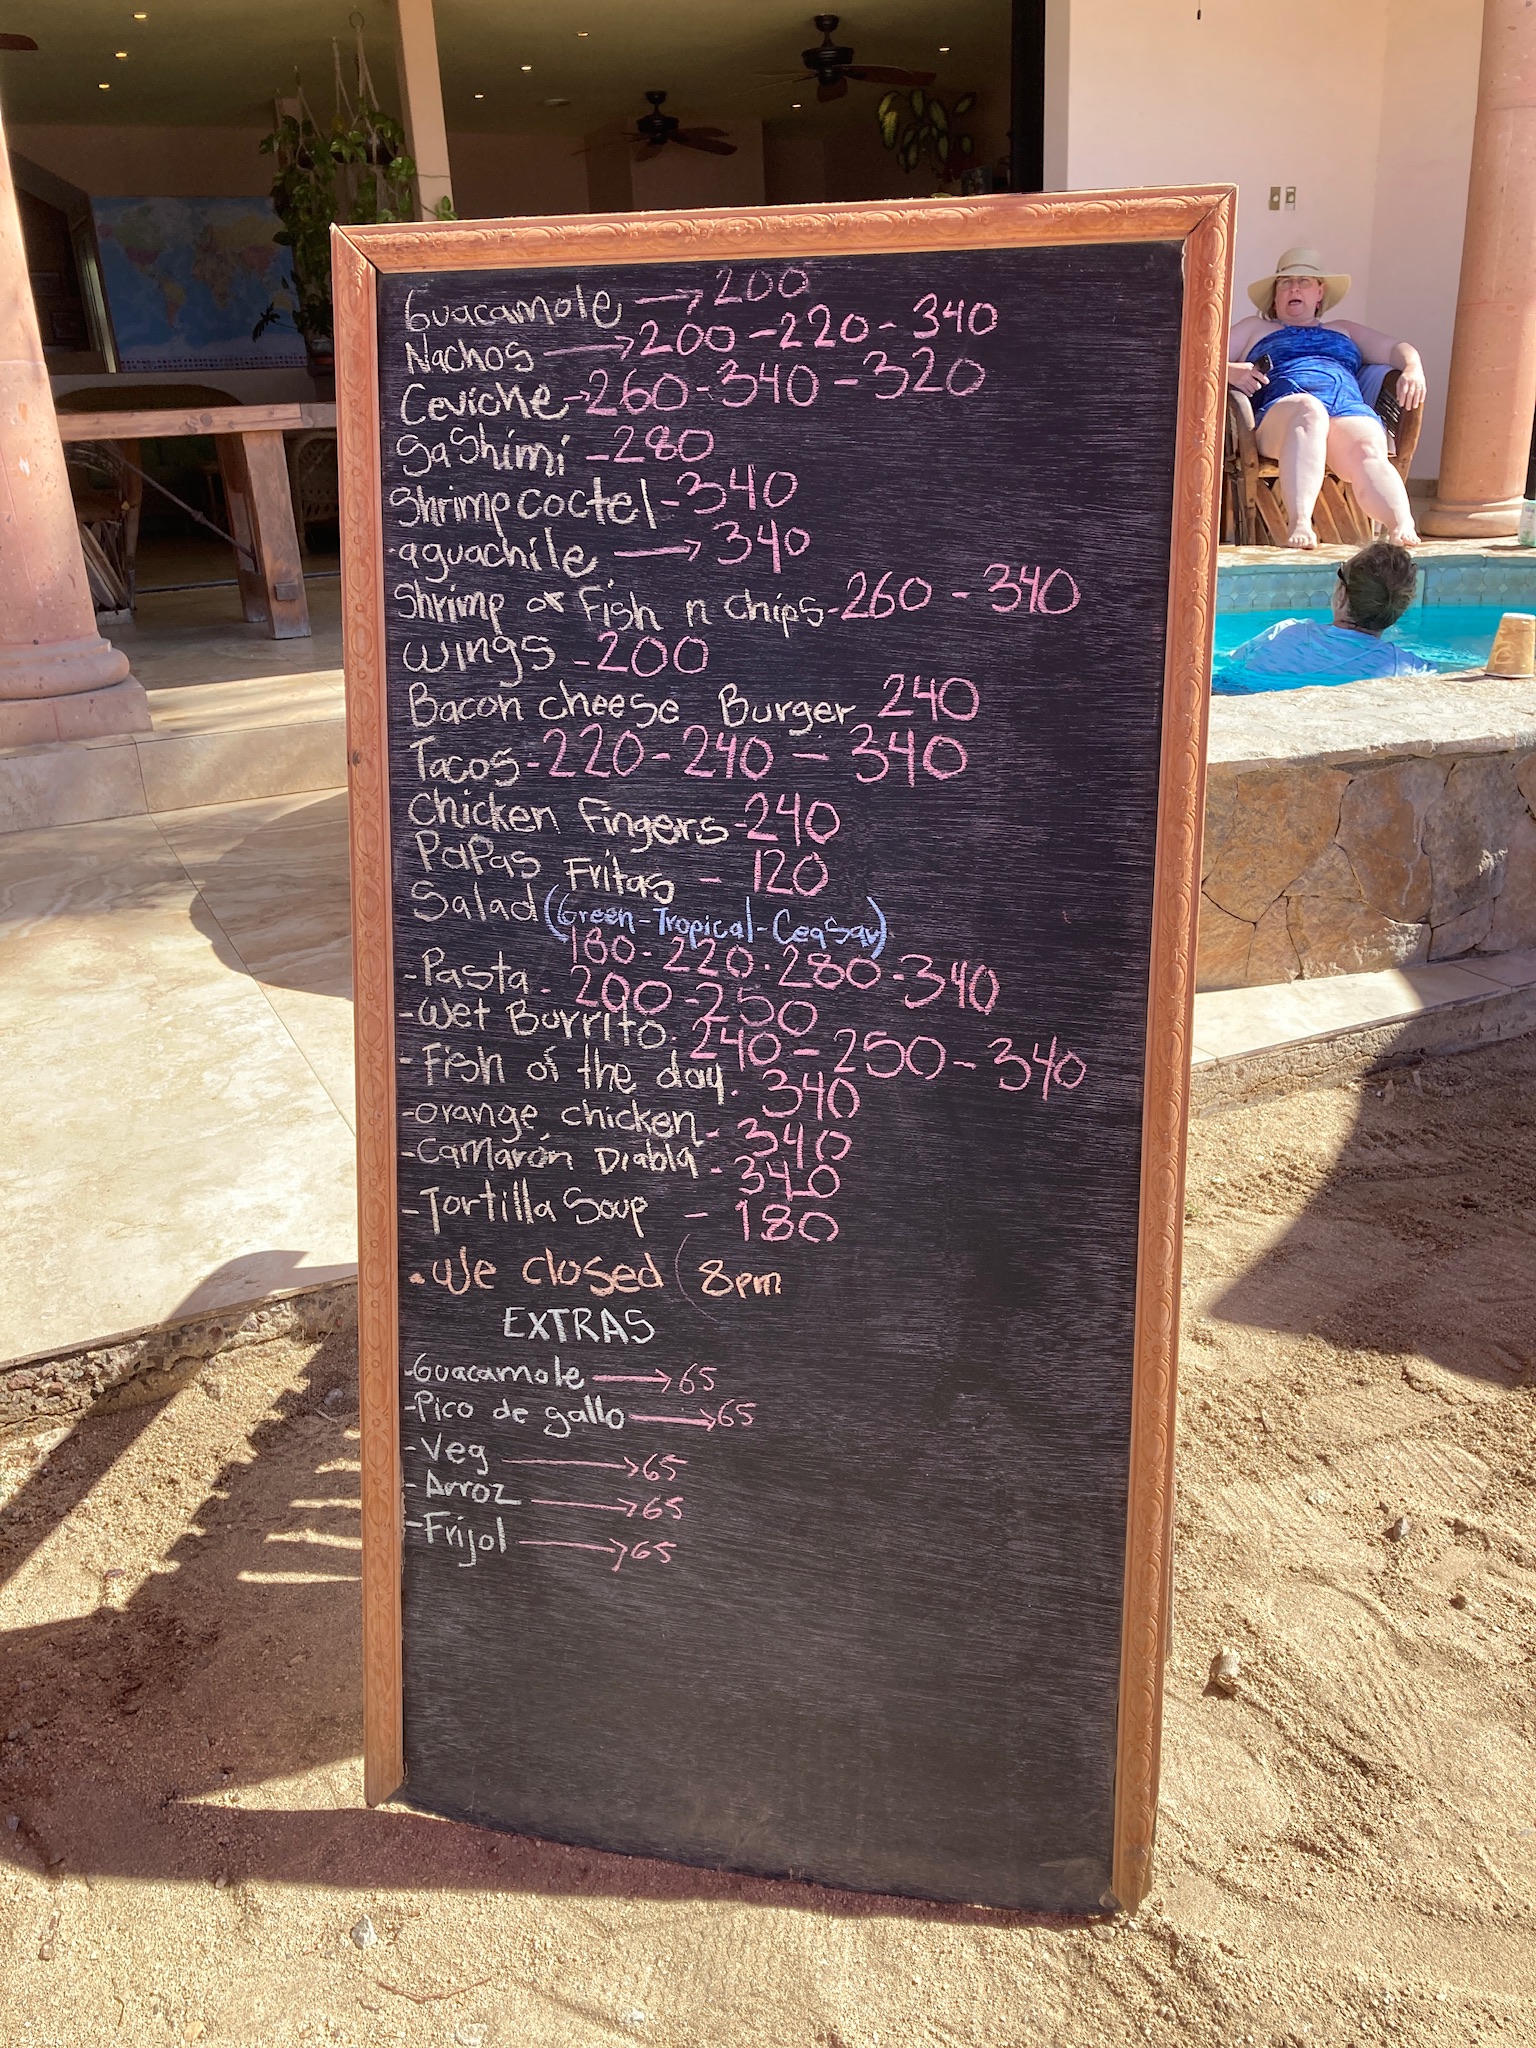 Guacamole → 200
Nachos → 200 - 220 - 340
Ceviche → 260 - 340 - 320
Sashimi - 280
Shrimp coctel - 340
·aguachile → 340
Shrimp or Fish n chips - 260 - 340
wings - 200
Bacon cheese Burger 240
Tacos - 220 - 240 - 340
Chicken Fingers - 240
Papas Fritas - 120
Salad (Green - Tropical - Ceasar)
180 - 220 · 280 - 340
- Pasta - 200 - 250
- Wet Burrito · 240 - 250 - 340
- Fish of the day · 340
- orange chicken - 340
- Camarón Diabla - 340
- Tortilla Soup - 180
· We closed ( 8pm
EXTRAS
- Guacamole → 65
- Pico de gallo → 65
- Veg → 65
- Arroz → 65
- Frijol → 65